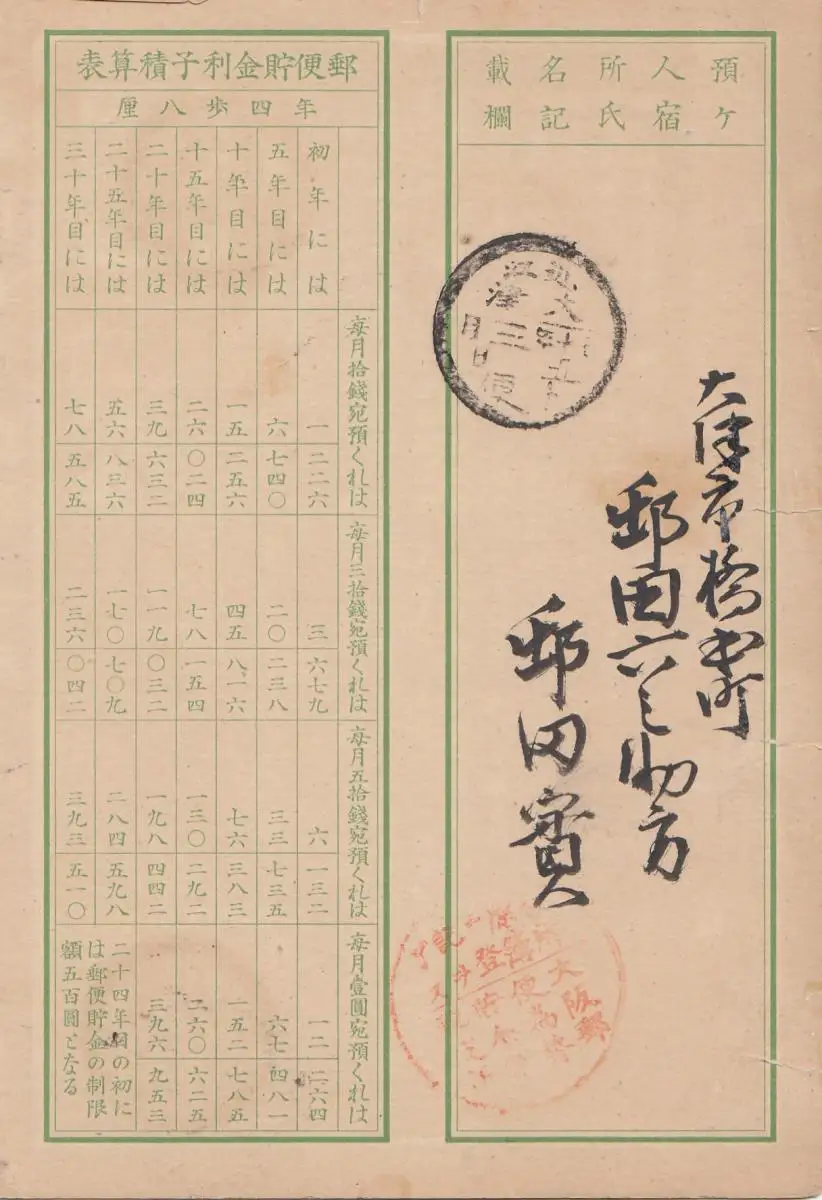 預ケ人宿所氏名記載欄
大津市橋本町
邨田六之助方
邨田實
近江
大津
三便
大阪郵便
郵便貯金利子積算表
年四歩八厘
毎月拾錢宛預くれは 毎月三拾錢宛預くれは 毎月五拾錢宛預くれは 毎月壹圓宛預くれは
初年には 一 二二六 三 六七九 六 一三二 一二 二六四
五年目には 六 七四〇 二〇 二三八 三三 七三五 六七 四八一
十年目には 一五 二五六 四五 八一六 七六 三八三 一五二 七八五
十五年目には 二六 〇二四 七八 一五四 一三〇 二九二 二六〇 六二五
二十年目には 三九 六三二 一一九 〇三二 一九八 四四二 三九六 九五三
二十五年目には 五六 八三六 一七〇 七〇九 二八四 五九八
三十年目には 七八 五八五 二三六 〇四二 三九三 五一〇
二十四年目の初に
は郵便貯金の制限
額五百圓となる